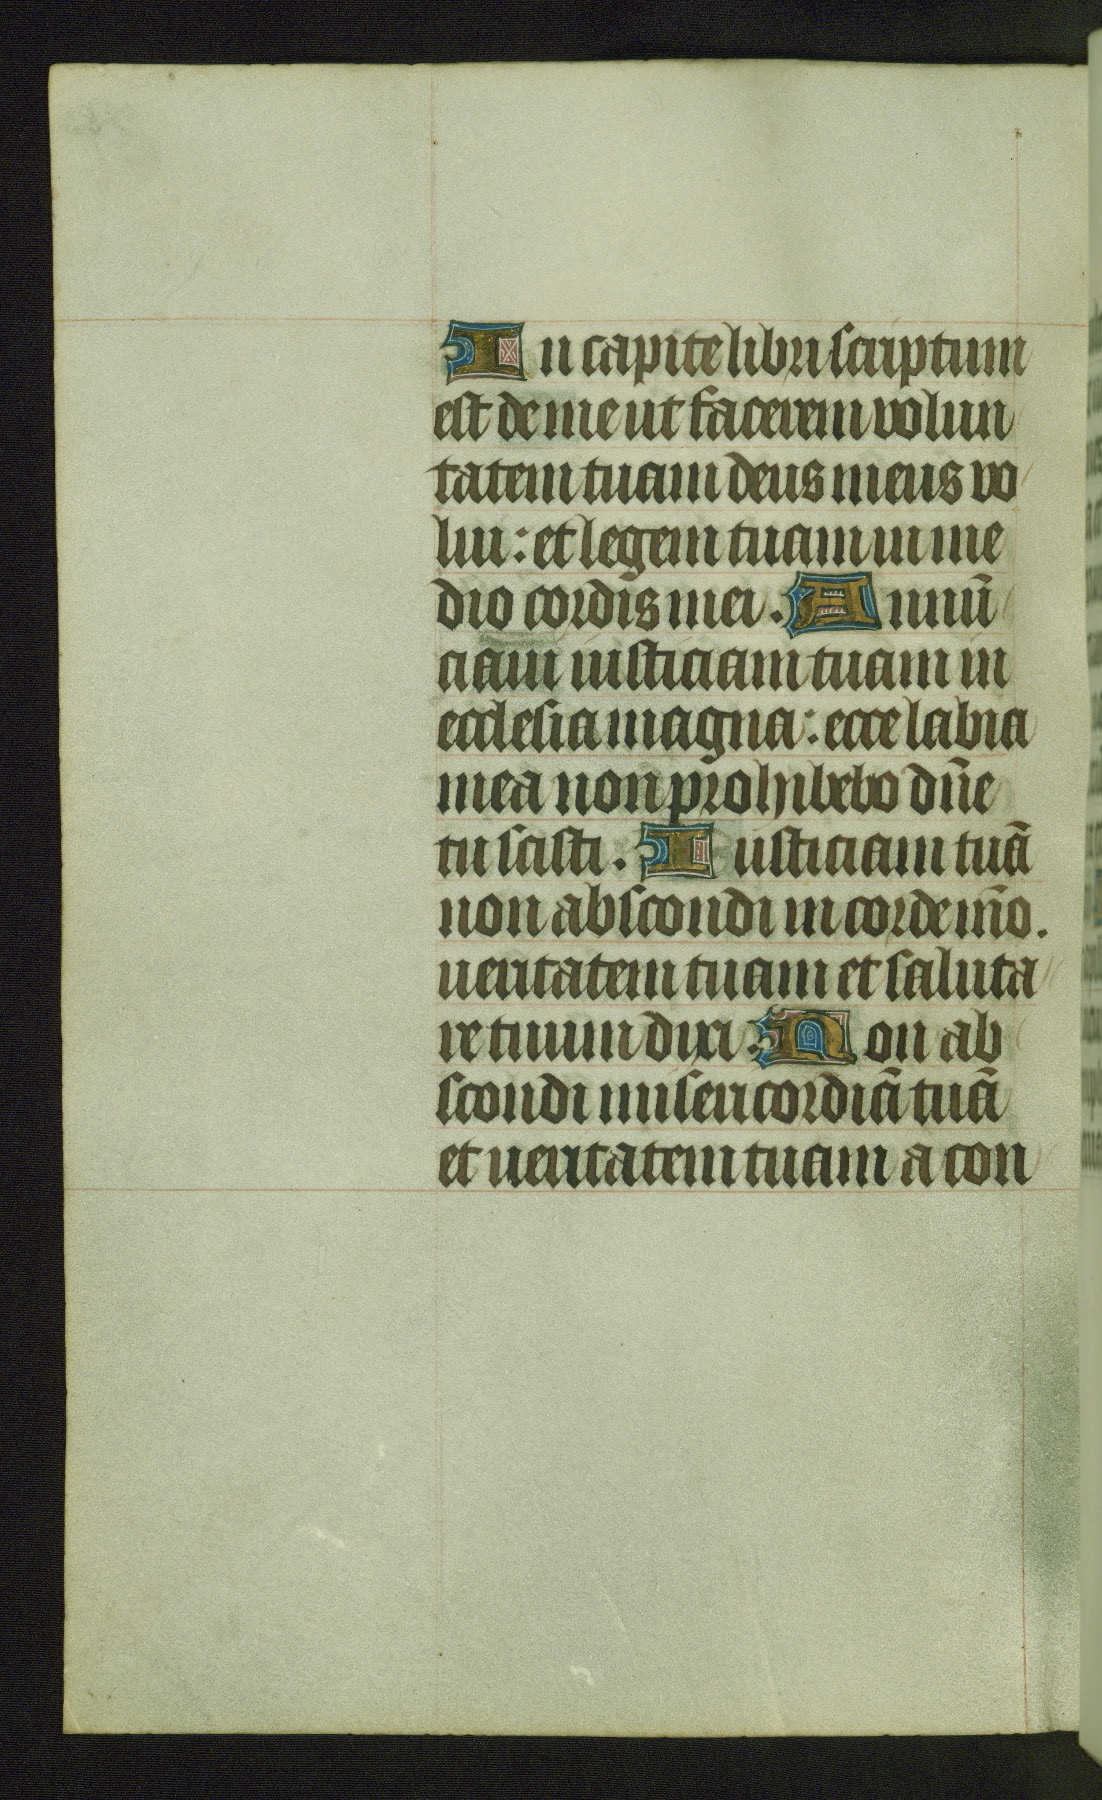 In capite libri scriptum
est de me ut facerem volun
tatem tuam deus meus vo
lui: et legem tuam in me
dio cordis mei. Annū
ciavi iusticiam tuam in
ecclesia magna: ecce labia
mea non prohibebo dn̄e
tu scisti. Iusticiam tuā
non abscondi in corde mēo.
ueritatem tuam et saluta
re tuum dixi. Non ab
scondi misericordiā tuā
et ueritatem tuam a con